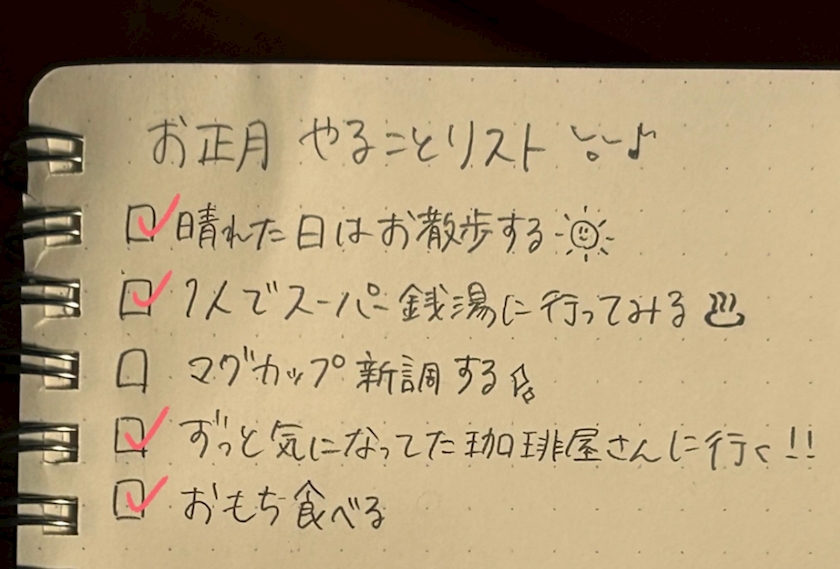 お正月 やることリスト
晴れた日はお散歩する
1人でスーパー銭湯に行ってみる
マグカップ新調する
ずっと気になってた珈琲屋さんに行く!!
おもち食べる